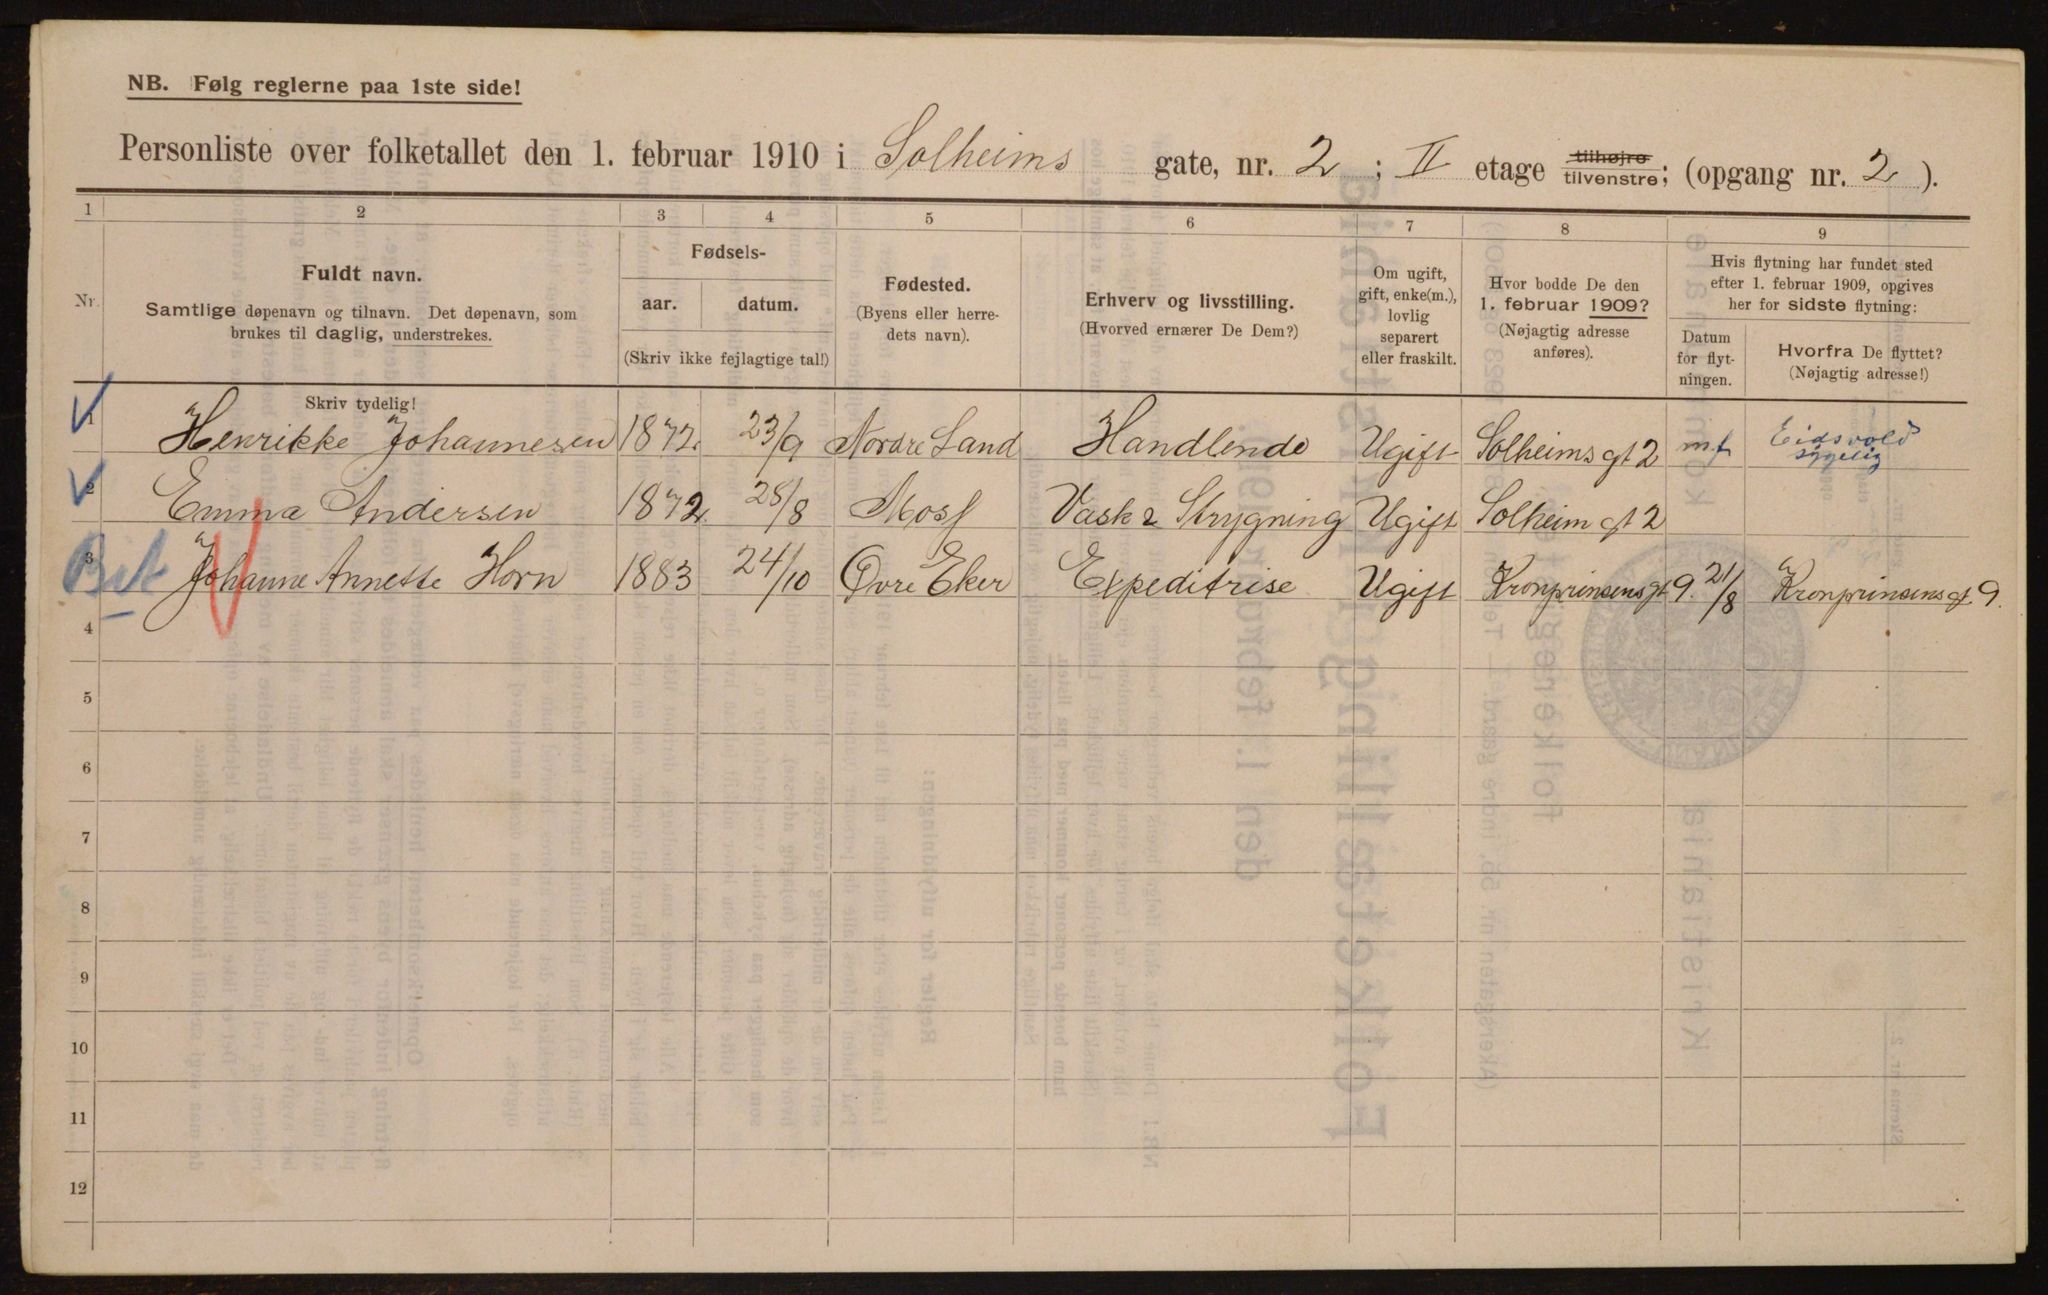 NB. Følg reglerne paa 1ste side!
Personliste over folketallet den 1. februar 1910 i Solheims gate, nr. 2 ; II etage tilhøjre tilvenstre; (opgang nr. 2 ).
1 2 3 4 5 6 7 8 9
Nr. Fuldt navn. Samtlige døpenavn og tilnavn. Det døpenavn, som brukes til daglig, understrekes. Skriv tydelig!
Fødsels- aar. datum. (Skriv ikke fejlagtige tal!)
Fødested. (Byens eller herredets navn).
Erhverv og livsstilling. (Hvorved ernærer De Dem?)
Om ugift, gift, enke(m.), lovlig separert eller fraskilt.
Hvor bodde De den 1. februar 1909? (Nøjagtig adresse anføres).
Hvis flytning har fundet sted efter 1. februar 1909, opgives her for sidste flytning:
Datum for flytningen. Hvorfra De flyttet? (Nøjagtig adresse!)
1 Henrikke Johannesen 1872 23/9 Nordre Land Handlende Ugift Solheims gt 2 mf Eidsvold
2 Emma Andersen 1872 28/8 Moss Vask & Strygning Ugift Solheim gt 2
3 Johanne Annette Horn 1883 24/10 Øvre Eker Expeditrise Ugift Kronprinsens gt 9. 21/8 Kronprinsens gt. 9.
4
5
6
7
8
9
10
11
12